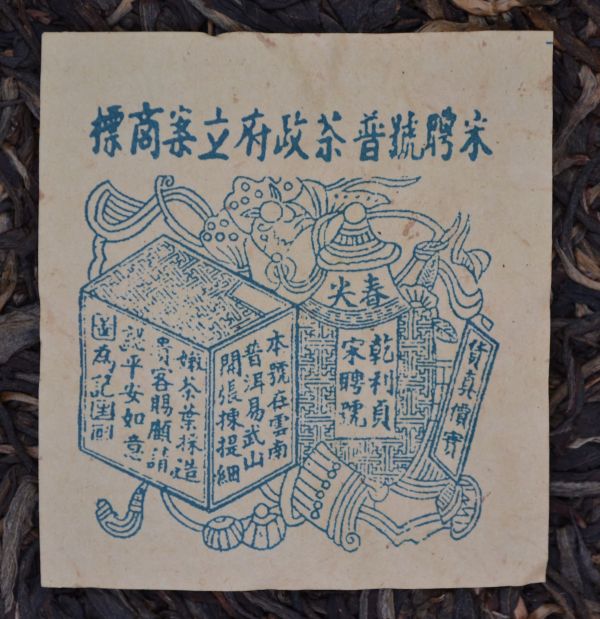 宋聘號普茶政府立案商標
貨真價實
春尖
乾利貞
宋聘號
本號在雲南
普洱易武山
開張揀提細
嫩茶葉採造
貴客賜顧請
認平安如意
圖為記